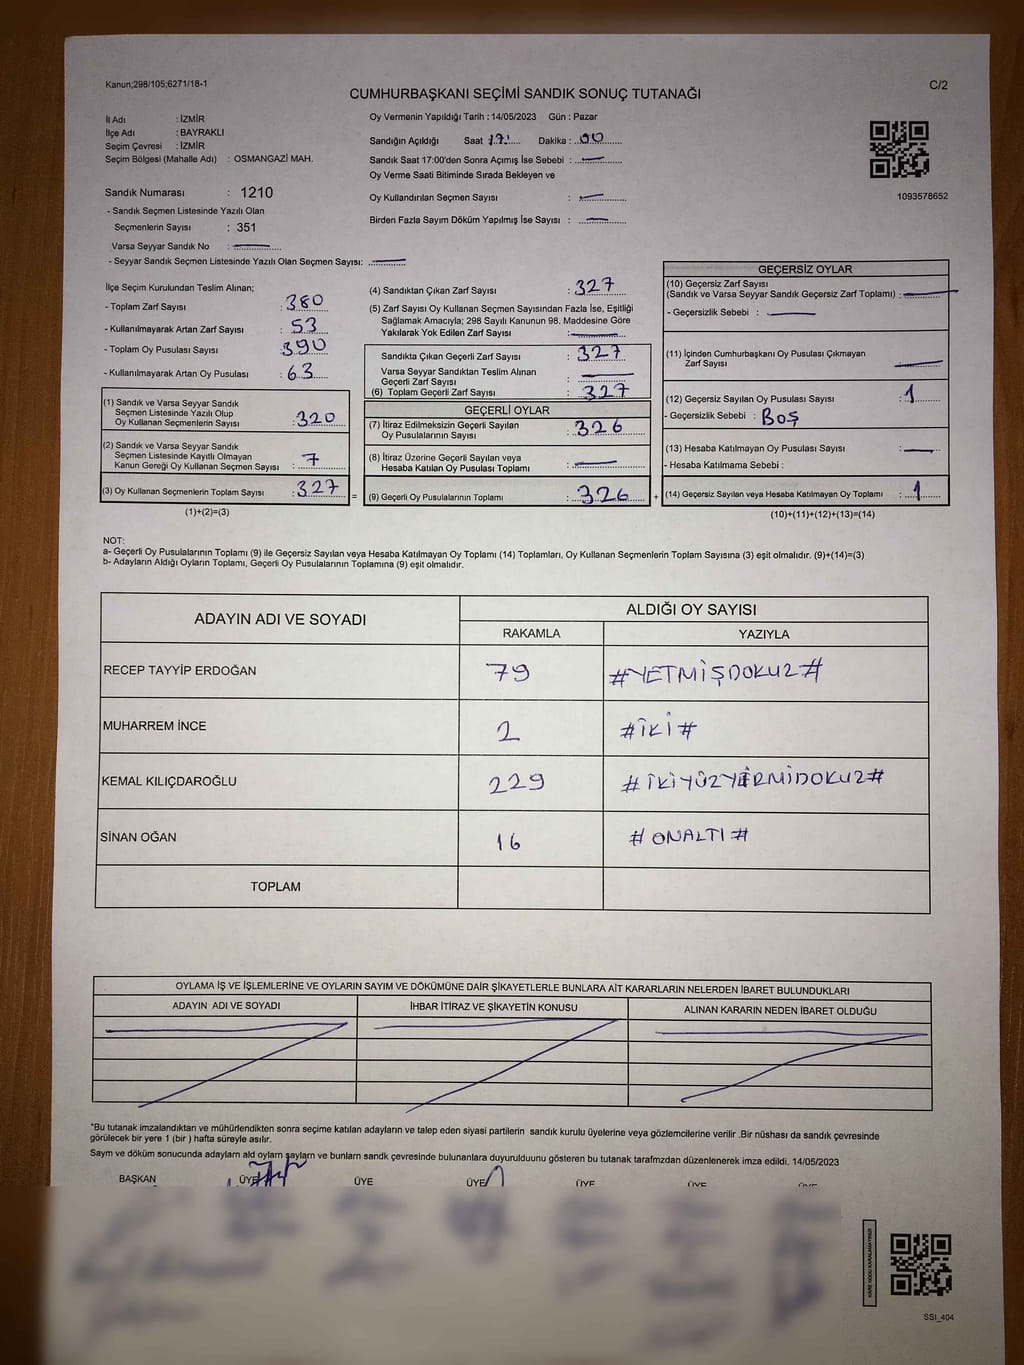 Kanun;298/105;6271/18-1
C/2
CUMHURBAŞKANI SEÇİMİ SANDIK SONUÇ TUTANAĞI
İl Adı : İZMİR
İlçe Adı : BAYRAKLI
Seçim Çevresi : İZMİR
Seçim Bölgesi (Mahalle Adı) : OSMANGAZİ MAH.
Sandık Numarası : 1210
- Sandık Seçmen Listesinde Yazılı Olan
Seçmenlerin Sayısı : 351
Varsa Seyyar Sandık No :
- Seyyar Sandık Seçmen Listesinde Yazılı Olan Seçmen Sayısı:
Oy Vermenin Yapıldığı Tarih : 14/05/2023 Gün : Pazar
Sandığın Açıldığı Saat 17: Dakika : 00
Sandık Saat 17:00'den Sonra Açımış İse Sebebi :
Oy Verme Saati Bitiminde Sırada Bekleyen ve
Oy Kullandırılan Seçmen Sayısı :
Birden Fazla Sayım Döküm Yapılmış İse Sayısı :
1093578652
İlçe Seçim Kurulundan Teslim Alınan;
- Toplam Zarf Sayısı : 380
- Kullanılmayarak Artan Zarf Sayısı : 53
- Toplam Oy Pusulası Sayısı : 390
- Kullanılmayarak Artan Oy Pusulası : 63
(1) Sandık ve Varsa Seyyar Sandık
Seçmen Listesinde Yazılı Olup
Oy Kullanan Seçmenlerin Sayısı : 320
(2) Sandık ve Varsa Seyyar Sandık
Seçmen Listesinde Kayıtlı Olmayan
Kanun Gereği Oy Kullanan Seçmen Sayısı : 7
(3) Oy Kullanan Seçmenlerin Toplam Sayısı : 327
(1)+(2)=(3)
=
(4) Sandıktan Çıkan Zarf Sayısı : 327
(5) Zarf Sayısı Oy Kullanan Seçmen Sayısından Fazla İse, Eşitliği
Sağlamak Amacıyla; 298 Sayılı Kanunun 98. Maddesine Göre
Yakılarak Yok Edilen Zarf Sayısı :
Sandıkta Çıkan Geçerli Zarf Sayısı : 327
Varsa Seyyar Sandıktan Teslim Alınan
Geçerli Zarf Sayısı :
(6) Toplam Geçerli Zarf Sayısı : 327
GEÇERLİ OYLAR
(7) İtiraz Edilmeksizin Geçerli Sayılan
Oy Pusulalarının Sayısı : 326
(8) İtiraz Üzerine Geçerli Sayılan veya
Hesaba Katılan Oy Pusulası Toplamı :
(9) Geçerli Oy Pusulalarının Toplamı : 326
+
GEÇERSİZ OYLAR
(10) Geçersiz Zarf Sayısı
(Sandık ve Varsa Seyyar Sandık Geçersiz Zarf Toplamı) :
- Geçersizlik Sebebi :
(11) İçinden Cumhurbaşkanı Oy Pusulası Çıkmayan
Zarf Sayısı :
(12) Geçersiz Sayılan Oy Pusulası Sayısı : 1
- Geçersizlik Sebebi : BOŞ
(13) Hesaba Katılmayan Oy Pusulası Sayısı :
- Hesaba Katılmama Sebebi :
(14) Geçersiz Sayılan veya Hesaba Katılmayan Oy Toplamı : 1
(10)+(11)+(12)+(13)=(14)
NOT:
a- Geçerli Oy Pusulalarının Toplamı (9) ile Geçersiz Sayılan veya Hesaba Katılmayan Oy Toplamı (14) Toplamları, Oy Kullanan Seçmenlerin Toplam Sayısına (3) eşit olmalıdır. (9)+(14)=(3)
b- Adayların Aldığı Oyların Toplamı, Geçerli Oy Pusulalarının Toplamına (9) eşit olmalıdır.
ADAYIN ADI VE SOYADI ALDIĞI OY SAYISI
RAKAMLA YAZIYLA
RECEP TAYYİP ERDOĞAN 79 #YETMİŞDOKUZ#
MUHARREM İNCE 2 #İKİ#
KEMAL KILIÇDAROĞLU 229 #İKİYÜZYİRMİDOKUZ#
SİNAN OĞAN 16 #ONALTI#
TOPLAM
OYLAMA İŞ VE İŞLEMLERİNE VE OYLARIN SAYIM VE DÖKÜMÜNE DAİR ŞİKAYETLERLE BUNLARA AİT KARARLARIN NELERDEN İBARET BULUNDUKLARI
ADAYIN ADI VE SOYADI İHBAR İTİRAZ VE ŞİKAYETİN KONUSU ALINAN KARARIN NEDEN İBARET OLDUĞU
*Bu tutanak imzalandıktan ve mühürlendikten sonra seçime katılan adayların ve talep eden siyasi partilerin sandık kurulu üyelerine veya gözlemcilerine verilir .Bir nüshası da sandık çevresinde
görülecek bir yere 1 (bir ) hafta süreyle asılır.
Sayım ve döküm sonucunda adayların ald oyların sayıları ve bunların sandk çevresinde bulunanlara duyurulduunu gösteren bu tutanak tarafmzdan düzenlenerek imza edildi. 14/05/2023
BAŞKAN ÜYE ÜYE ÜYE ÜYE ÜYE ÜYE
KARE KODU KARALAMAYINIZ!
SSI_404